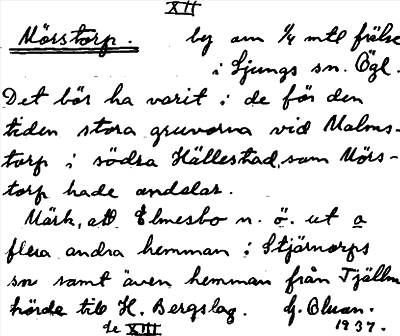 XII
Mörstorp. by om 1/4 mtl frälse
i Ljungs sn. Ögl.
Det bör ha varit i de för den
tiden stora gruvorna vid Malms-
torp i södra Hällestad, som Mörs-
torp hade andelar.
Märk, att Elmesbo n. ö. ut o
flera andra hemman i Stjärnorps
sn samt även hemman från Tjällm
hörde till H. Bergslag.
1937.
XIII